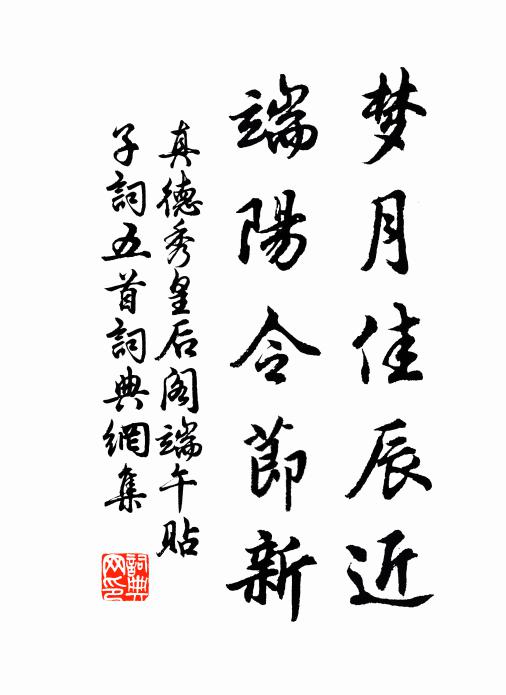 梦月佳辰近
端陽令節新
真德秀皇后阁端午貼
子詞五首詞典網集
詞典
网印